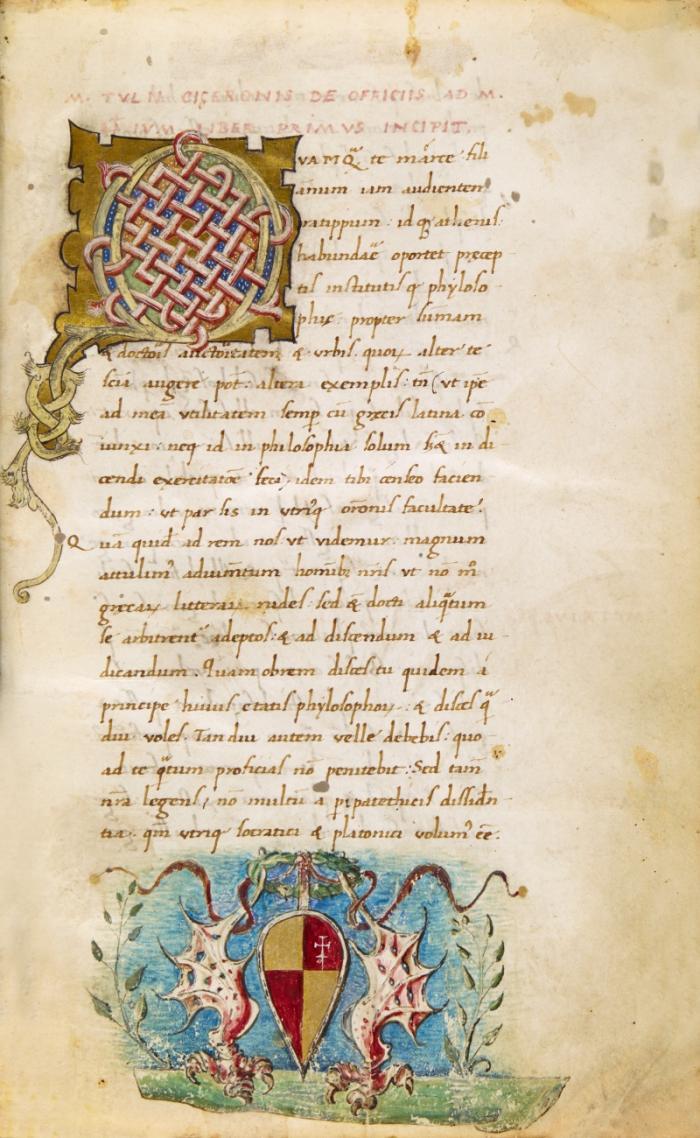 M. TVLII CICERONIS DE OFFICIIS AD M.
LIBER PRIMVS INCIPIT.
QVAMQȜ te marce fili
annum iam audientem
cratippum: idqȝ athenis:
habundare oportet præcep
tis institutisqȝ phyloso
phiæ propter sūmam
& doctoris auctoritatem & vrbis. quoꝝ alter te
scia augere pot: altera exemplis: tn̄ (vt ipē
ad meā vtilitatem semp̱ cū græcis latina co
iunxi: neqȝ id in philosophia solum sæ in di
cendi exercitatōe feci, idem tibi censeo facien
dum: vt par sis in vtriq̃ orōnis facultate.
Quā quid ad rem nos vt videmur. magnum
attulim᾿ adiumentum homibȝ nr̄is vt nō mō
græcaꝝ litteraꝝ rudes. sed & docti aliq̄tum
se arbitrent᷑ adeptos: & ad discendum & ad iu
dicandum. Quam obrem disces tu quidem a
principe huius etatis phylosophoꝝ: & disces q̄
diu voles. Tan diu autem velle debebis: quo
ad te q̄tum proficias nō penitebit: Sed tam̄
nr̄a legens, nō multū a peripatheticis dissidn
tia. qm̄ vtriqȝ socratici & platonici volum᾿ eē.